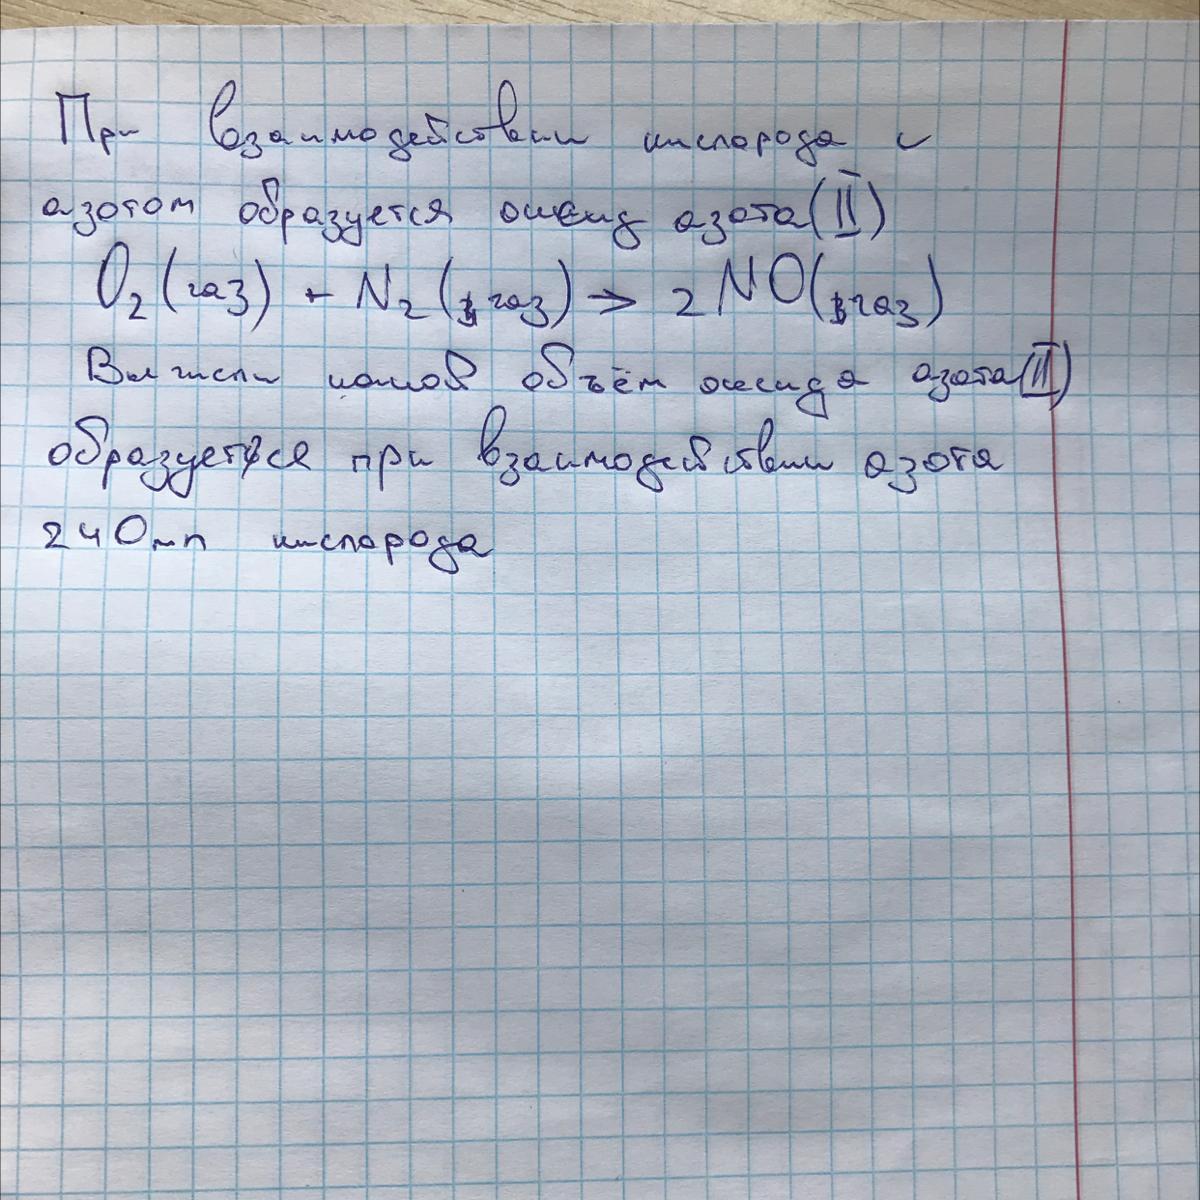 При взаимодействии кислорода с
азотом образуется оксид азота (II)
O₂ (газ) + N₂ (газ) → 2 NO (газ)
Вычисли какой объём оксида азота (II)
образуется при взаимодействии азота
240 мл кислорода